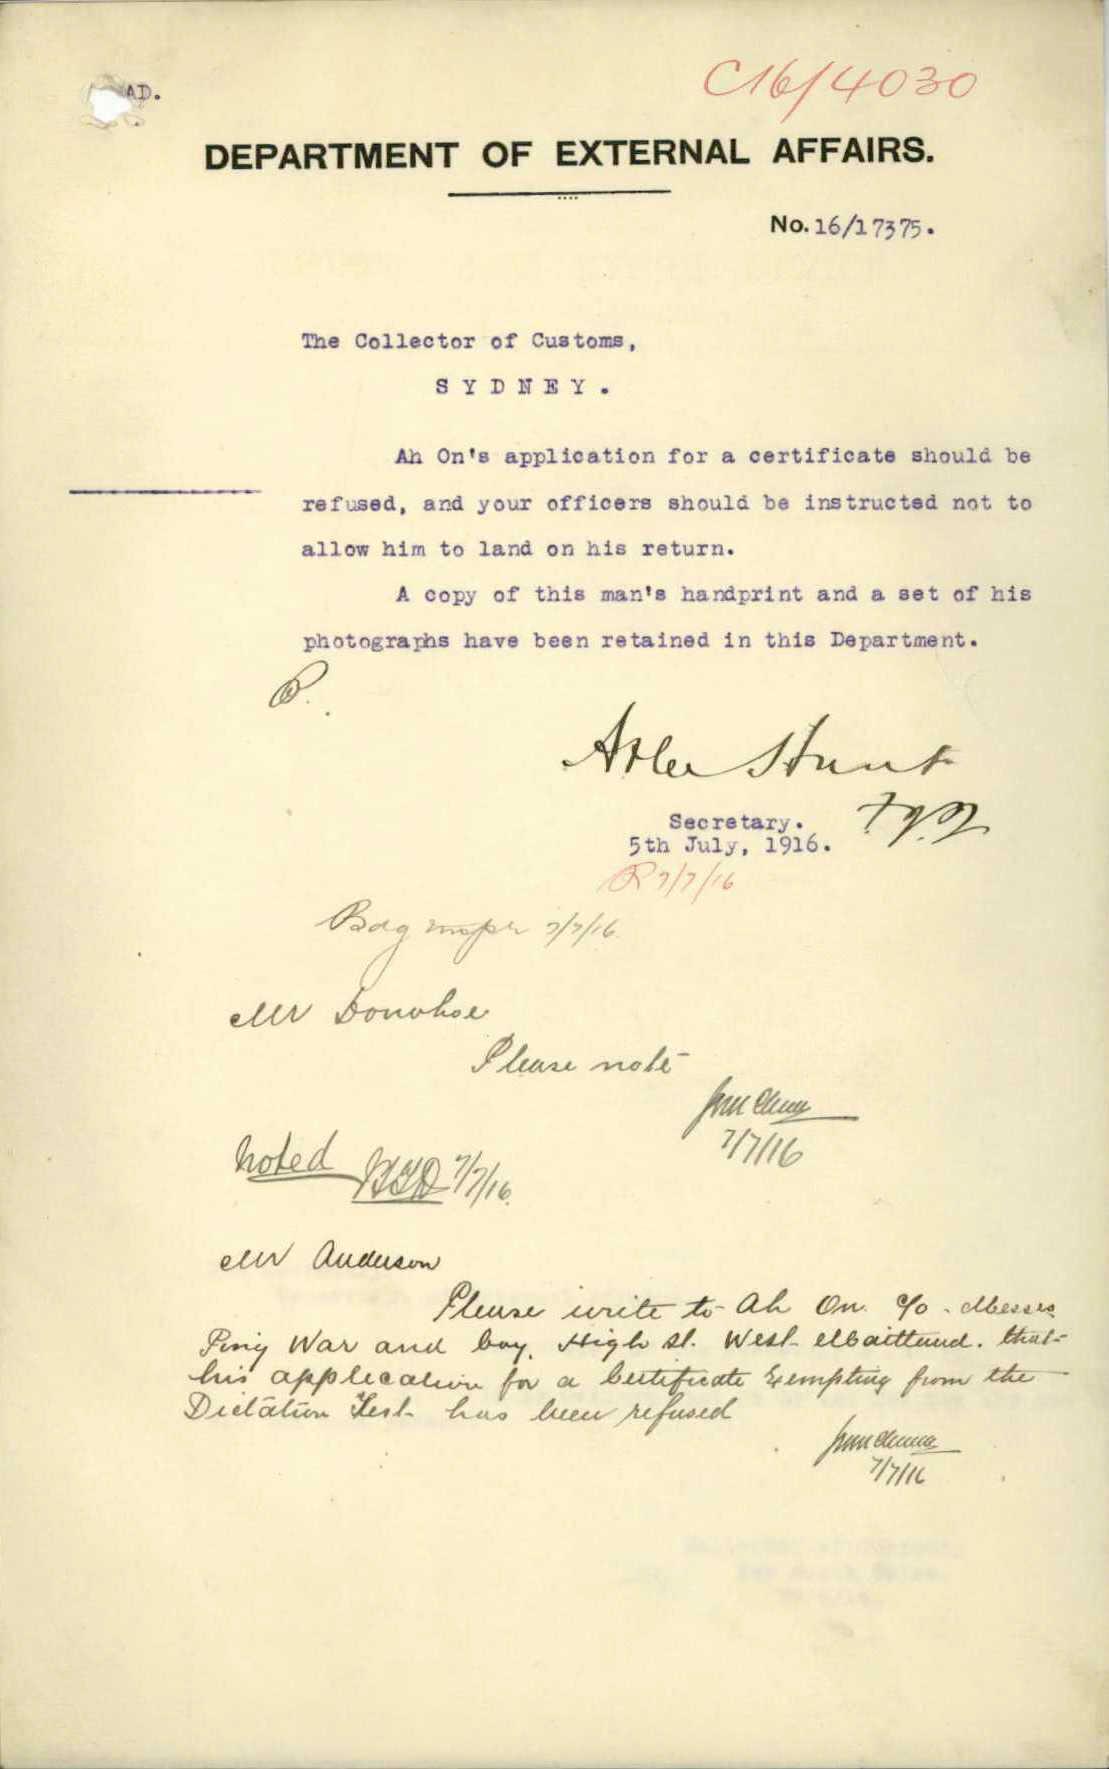 C16/4030
AD.
DEPARTMENT OF EXTERNAL AFFAIRS.
No. 16/17375.
The Collector of Customs,
SYDNEY.
Ah On's application for a certificate should be
refused, and your officers should be instructed not to
allow him to land on his return.
A copy of this man's handprint and a set of his
photographs have been retained in this Department.
Atlee Hunt
Secretary.
5th July, 1916.
R 7/7/16
7/7/16
Mr Donohoe
Please note
7/7/16
Noted
7/7/16.
Mr Anderson
Please write to Ah On. c/o Messrs
War and Coy, High St. West Maitland. that
his application for a Certificate Exempting from the
Dictation Test has been refused
7/7/16